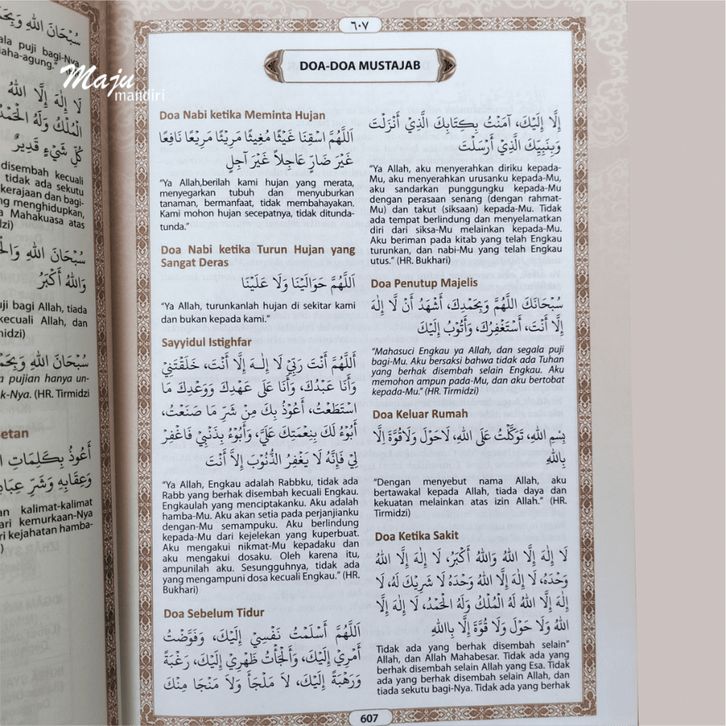 سُبْحَانَ اللهِ وَبِ
ala puji bagi-Nya
aha-agung."
لَا إِلٰهَ إِلَّا اللهُ
الْمُلْكُ وَلَهُ الْحَمْدُ
كُلِّ شَيْءٍ قَدِيرٌ
disembah kecuali
tidak ada sekutu
kerajaan dan bagi-
ng menghidupkan,
a Mahakuasa atas
zi)
سُبْحَانَ اللهِ وَالْحَ
وَاللهُ أَكْبَرُ
uji bagi Allah, tiada
kecuali Allah, dan
midzi)
سُبْحَانَ اللهِ وَبِحَمْ
n pujian hanya un-
k-Nya. (HR. Tirmidzi
etan
أَعُوذُ بِكَلِمَاتِ ال
وَعِقَابِهِ وَشَرِّ عِبَادِ
n kalimat-kalimat
ari kemurkaan-Nya
ri kejahatan hamba-
)
Maju
mandiri
٦٠٧
DOA-DOA MUSTAJAB
Doa Nabi ketika Meminta Hujan
اَللَّهُمَّ اسْقِنَا غَيْثًا مُغِيثًا مَرِيئًا مَرِيعًا نَافِعًا
غَيْرَ ضَارٍّ عَاجِلًا غَيْرَ آجِلٍ
"Ya Allah,berilah kami hujan yang merata,
menyegarkan tubuh dan menyuburkan
tanaman, bermanfaat, tidak membahayakan.
Kami mohon hujan secepatnya, tidak ditunda-
tunda."
Doa Nabi ketika Turun Hujan yang
Sangat Deras
اَللَّهُمَّ حَوَالَيْنَا وَلَا عَلَيْنَا
"Ya Allah, turunkanlah hujan di sekitar kami
dan bukan kepada kami."
Sayyidul Istighfar
اَللَّهُمَّ أَنْتَ رَبِّيْ لَا إِلٰهَ إِلَّا أَنْتَ، خَلَقْتَنِيْ
وَأَنَا عَبْدُكَ، وَأَنَا عَلَى عَهْدِكَ وَوَعْدِكَ مَا
اسْتَطَعْتُ، أَعُوْذُ بِكَ مِنْ شَرِّ مَا صَنَعْتُ،
أَبُوْءُ لَكَ بِنِعْمَتِكَ عَلَيَّ، وَأَبُوْءُ بِذَنْبِيْ فَاغْفِرْ
لِيْ فَإِنَّهُ لَا يَغْفِرُ الذُّنُوْبَ إِلَّا أَنْتَ
"Ya Allah, Engkau adalah Rabbku, tidak ada
Rabb yang berhak disembah kecuali Engkau.
Engkaulah yang menciptakanku. Aku adalah
hamba-Mu. Aku akan setia pada perjanjianku
dengan-Mu semampuku. Aku berlindung
kepada-Mu dari kejelekan yang kuperbuat.
Aku mengakui nikmat-Mu kepadaku dan
aku mengakui dosaku. Oleh karena itu,
ampunilah aku. Sesungguhnya, tidak ada
yang mengampuni dosa kecuali Engkau." (HR.
Bukhari)
Doa Sebelum Tidur
اَللَّهُمَّ أَسْلَمْتُ نَفْسِيْ إِلَيْكَ، وَفَوَّضْتُ
أَمْرِيْ إِلَيْكَ، وَأَلْجَأْتُ ظَهْرِيْ إِلَيْكَ، رَغْبَةً
وَرَهْبَةً إِلَيْكَ، لَا مَلْجَأَ وَلَا مَنْجَا مِنْكَ
إِلَّا إِلَيْكَ، آمَنْتُ بِكِتَابِكَ الَّذِيْ أَنْزَلْتَ
وَبِنَبِيِّكَ الَّذِيْ أَرْسَلْتَ
"Ya Allah, aku menyerahkan diriku kepada-
Mu, aku menyerahkan urusanku kepada-Mu,
aku sandarkan punggungku kepada-Mu
dengan perasaan senang (dengan rahmat-
Mu) dan takut (siksaan) kepada-Mu. Tidak
ada tempat berlindung dan menyelamatkan
diri dari siksa-Mu melainkan kepada-Mu.
Aku beriman pada kitab yang telah Engkau
turunkan, dan nabi-Mu yang telah Engkau
utus." (HR. Bukhari)
Doa Penutup Majelis
سُبْحَانَكَ اللَّهُمَّ وَبِحَمْدِكَ، أَشْهَدُ أَنْ لَا إِلٰهَ
إِلَّا أَنْتَ، أَسْتَغْفِرُكَ، وَأَتُوْبُ إِلَيْكَ
"Mahasuci Engkau ya Allah, dan segala puji
bagi-Mu. Aku bersaksi bahwa tidak ada Tuhan
yang berhak disembah selain Engkau. Aku
memohon ampun pada-Mu, dan aku bertobat
kepada-Mu." (HR. Tirmidzi)
Doa Keluar Rumah
بِسْمِ اللهِ، تَوَكَّلْتُ عَلَى اللهِ، لَاحَوْلَ وَلَاقُوَّةَ إِلَّا
بِاللهِ
"Dengan menyebut nama Allah, aku
bertawakal kepada Allah, tiada daya dan
kekuatan melainkan atas izin Allah." (HR.
Tirmidzi)
Doa Ketika Sakit
لَا إِلٰهَ إِلَّا اللهُ وَاللهُ أَكْبَرُ، لَا إِلٰهَ إِلَّا اللهُ
وَحْدَهُ، لَا إِلٰهَ إِلَّا اللهُ وَحْدَهُ لَا شَرِيْكَ لَهُ، لَا
إِلٰهَ إِلَّا اللهُ لَهُ الْمُلْكُ وَلَهُ الْحَمْدُ، لَا إِلٰهَ إِلَّا
اللهُ وَلَا حَوْلَ وَلَا قُوَّةَ إِلَّا بِاللهِ
Tidak ada yang berhak disembah selain"
Allah, dan Allah Mahabesar. Tidak ada yang
berhak disembah selain Allah yang Esa. Tidak
ada yang berhak disembah selain Allah, dan
tiada sekutu bagi-Nya. Tidak ada yang berhak
607